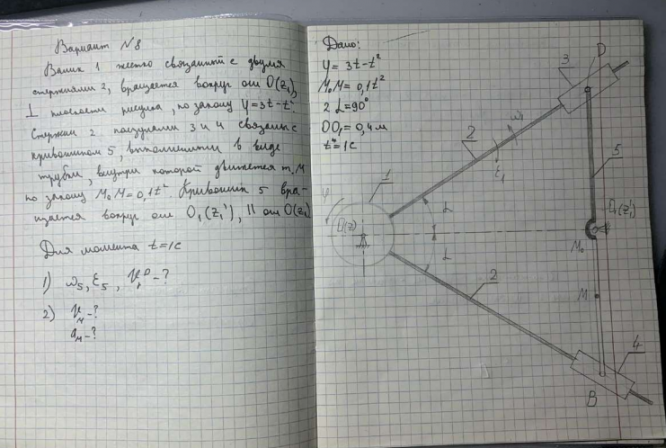 Вариант №8
Валик 1 жестко связанный с двумя
стержнями 2, вращается вокруг оси O(z),
⊥ плоскости рисунка, по закону φ=3t-t²
Стержни 2 ползунами 3 и 4 связаны с
кривошипом 5, выполненным в виде
трубки, внутри которой движется т. М
по закону M₀M=0,1t². Кривошип 5 вра-
щается вокруг оси O₁(z₁'), || оси O(z)
Для момента t=1c
1) ω₅, ε₅, -?
2) V_M-?
a_M-?
Дано:
φ=3t-t²
M₀M=0,1t²
2α=90°
OO₁=0,4м
t=1c
D
3
ω₁
2
ε₁
5
1
φ
α
O(z)
O₁(z₁')
M₀
α
2
M
4
B